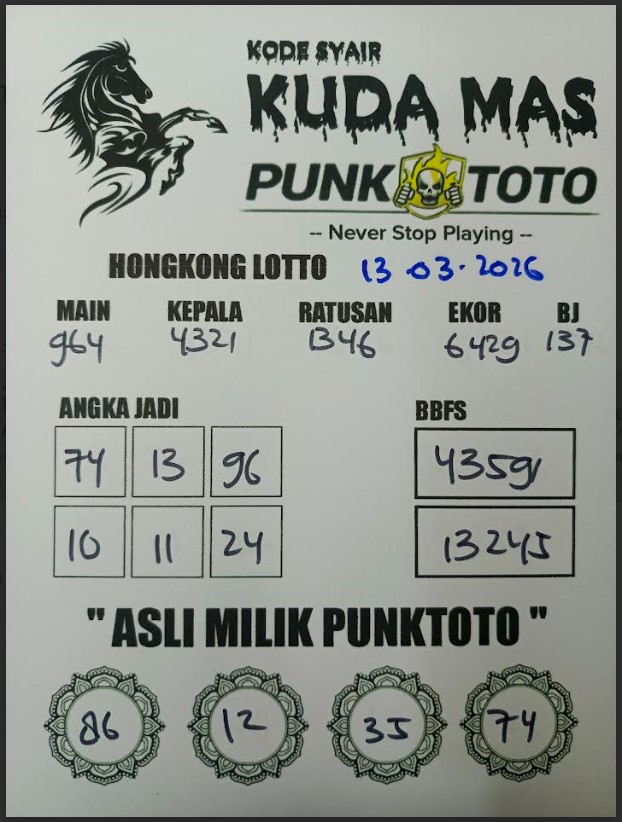 KODE SYAIR
KUDA MAS
PUNK TOTO
-- Never Stop Playing --
HONGKONG LOTTO 13.03.2026
MAIN KEPALA RATUSAN EKOR BJ
964 4321 1346 6429 137
ANGKA JADI BBFS
74 13 96 4359
10 11 24 13245
" ASLI MILIK PUNKTOTO "
86 12 35 74